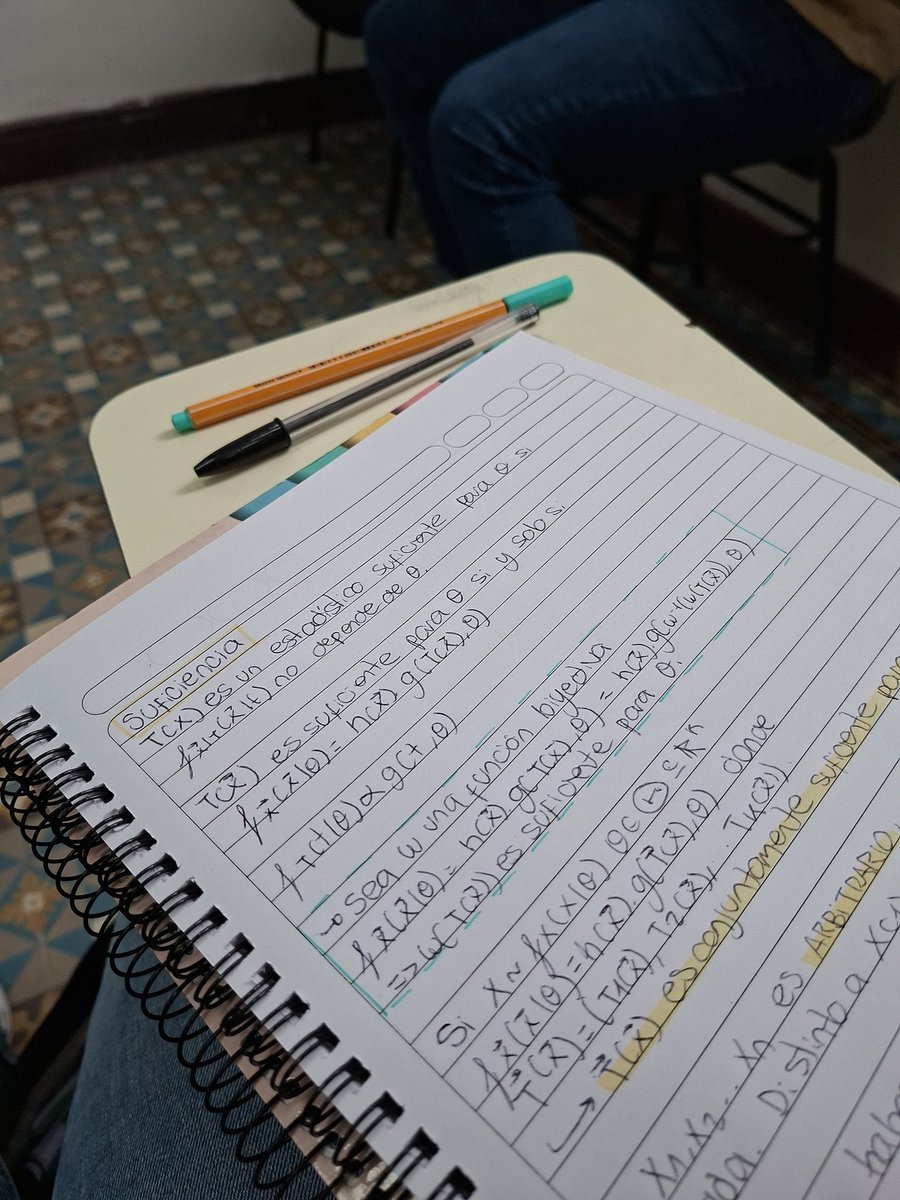 Suficiencia
T(X) es un estadístico suficiente para θ si
f x⃗|T(x⃗|t) no depende de θ.
T(X⃗) es suficiente para θ si y solo si
f x⃗(x⃗|θ) = h(x⃗) g(T(x⃗), θ)
f T(t|θ) α g(t, θ)
→ Sea w una función biyectiva
f x⃗(x⃗|θ) = h(x⃗) g(T(x⃗), θ) = h(x⃗) g(w⁻¹(w(T(x⃗)), θ)
=> w(T(x⃗)) es suficiente para θ.
Si X ~ f x(x|θ) θ∈ Θ ⊆ ℝⁿ
f x⃗(x⃗|θ) = h(x⃗). g(T⃗(x⃗), θ) donde
T⃗(x⃗) = (T1(x⃗), T2(x⃗), ... Tk(x⃗)).
→ T⃗(x⃗) es conjuntamente suficiente para
X1, X2 ... Xn es ARBITRARIO,
da. Distinto a X(1)